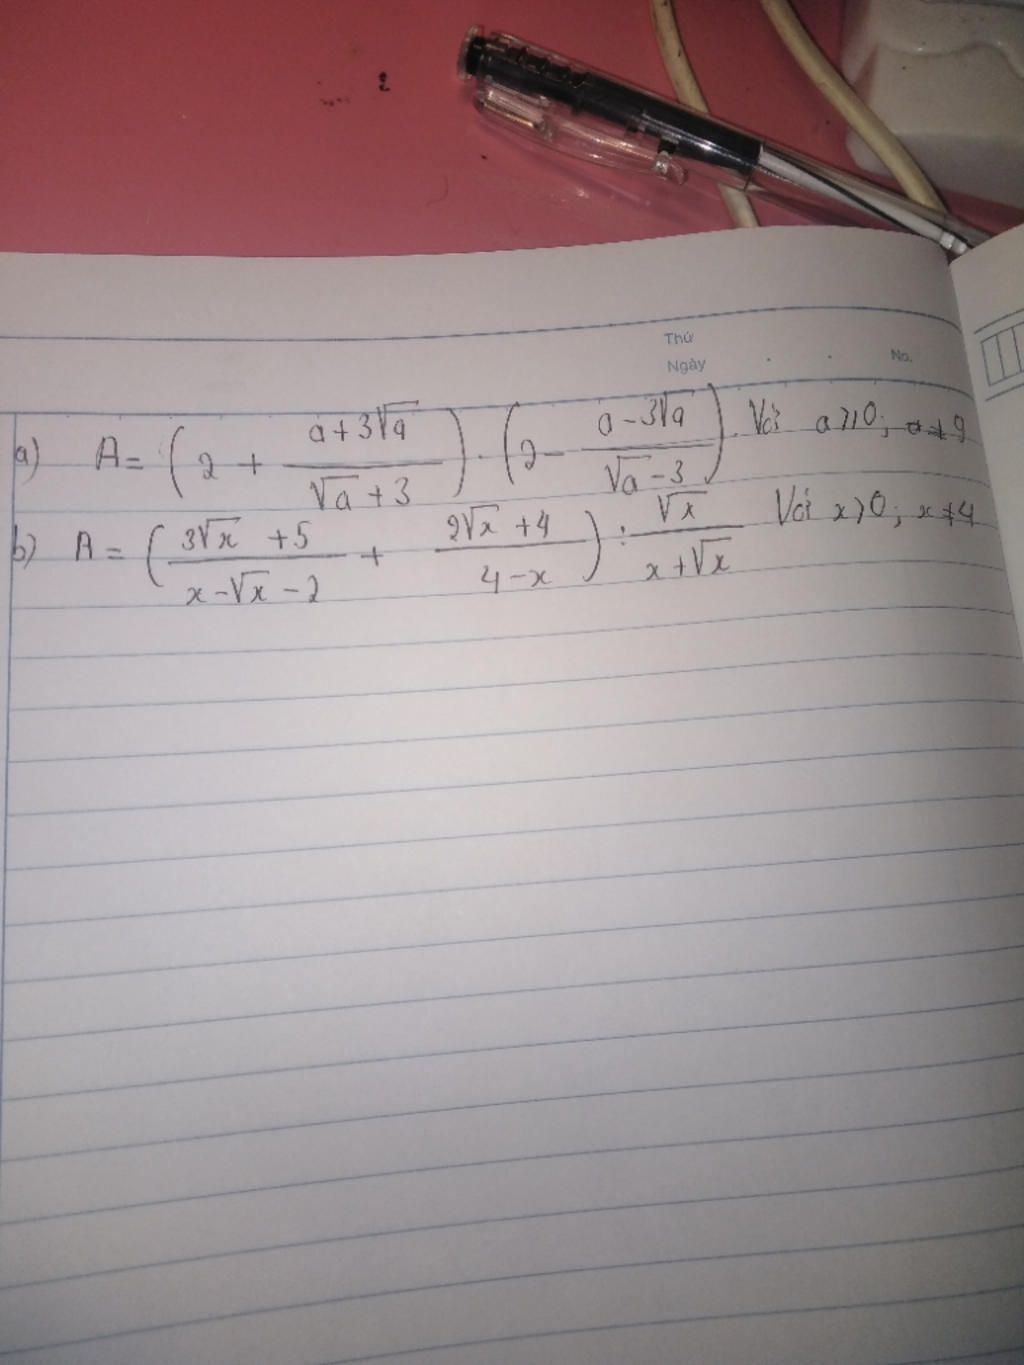 Thứ
Ngày
No.
a) A = (2 + (a + 3√a)/(√a + 3)) . (2 - (a - 3√a)/(√a - 3)). Với a ⩾ 0; a ≠ 9
b) A = ((3√x + 5)/(x - √x - 2) + (2√x + 4)/(4 - x)) : (√x)/(x + √x) Với x > 0; x ≠ 4